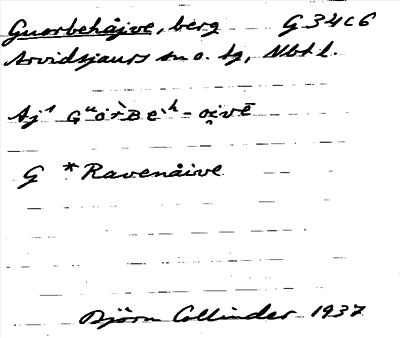 Guorbehåjve, berg G 34 c 6
Arvidsjaurs sn o. tg, Nbt l.
Aj¹ Gᵘȯr̀Bėʰ - oi̯vē
G *Ravenåive
Björn Collinder 1937